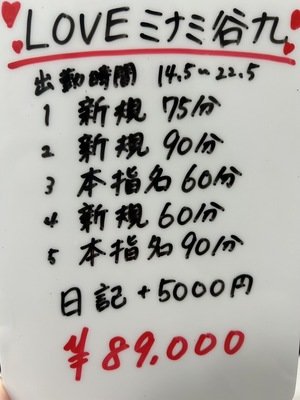 LOVEミナミ谷九
出勤時間 14.5~22.5
1 新規 75分
2 新規 90分
3 本指名60分
4 新規 60分
5 本指名90分
日記+5000円
¥89.000